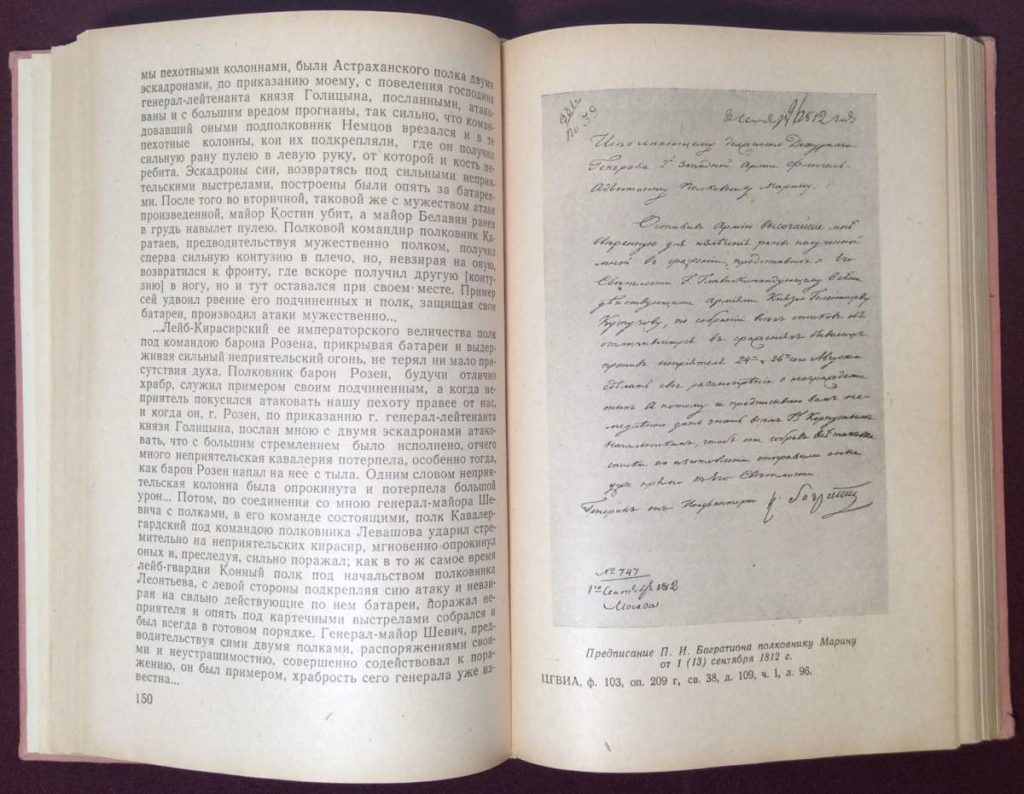 мы пехотными колоннами, были Астраханского полка двумя
эскадронами, по приказанию моему, с повеления господина
генерал-лейтенанта князя Голицына, посланными, атако-
ваны и с большим вредом прогнаны, так сильно, что коман-
довавший оными подполковник Немцов врезался и в те
пехотные колонны, кои их подкрепляли, где он получил
сильную рану пулею в левую руку, от которой и кость пе-
ребита. Эскадроны сии, возвратясь под сильными неприя-
тельскими выстрелами, построены были опять за батарея-
ми. После того во вторичной, таковой же с мужеством атаке
произведенной, майор Костин убит, а майор Белавин ранен
в грудь навылет пулею. Полковой командир полковник Ка-
ратаев, предводительствуя мужественно полком, получил
сперва сильную контузию в плечо, но, невзирая на оную,
возвратился к фронту, где вскоре получил другую [конту-
зию] в ногу, но и тут оставался при своем месте. Пример
сей удвоил рвение его подчиненных и полк, защищая свои
батареи, производил атаки мужественно...
...Лейб-Кирасирский ее императорского величества полк
под командою барона Розена, прикрывая батареи и выдер-
живая сильный неприятельский огонь, не терял ни мало при-
сутствия духа. Полковник барон Розен, будучи отлично
храбр, служил примером своим подчиненным, а когда не-
приятель покусился атаковать нашу пехоту правее от нас,
и когда он, г. Розен, по приказанию г. генерал-лейтенанта
князя Голицына, послан мною с двумя эскадронами атако-
вать, что с большим стремлением было исполнено, отчего
много неприятельская кавалерия потерпела, особенно тогда,
как барон Розен напал на нее с тыла. Одним словом неприя-
тельская колонна была опрокинута и потерпела большой
урон... Потом, по соединении со мною генерал-майора Ше-
вича с полками, в его команде состоящими, полк Кавалер-
гардский под командою полковника Левашова ударил стре-
мительно на неприятельских кирасир, мгновенно опрокинул
оных и, преследуя, сильно поражал; как в то ж самое время
лейб-гвардии Конный полк под начальством полковника
Леонтьева, с левой стороны подкрепляя сию атаку и невзи-
рая на сильно действующие по нем батареи, поражал не-
приятеля и опять под картечными выстрелами собрался и
был всегда в готовом порядке. Генерал-майор Шевич, пред-
водительствуя сими двумя полками, распоряжениями свои-
ми и неустрашимостию, совершенно содействовал к пора-
жению, он был примером, храбрость сего генерала уже из-
вестна...
150
1812
Исполняющему должность Дежурнаго
Генерала 2й Западной Армии Флигель-
Адъютанту Полковнику Марину.
Оставив Армию высочайше мне
вверенную для излечения раны полученной
мной в сражении, представил я Его
Светлости Г. Главнокомандующему всеми
действующими армиями Князю
Кутузову, по собрании всех списков об
отличившихся в сражениях бывших
против неприятеля 24го и 26го Августа
сделать свое разсмотрение о награждении
А потому и предписываю вам не-
медленно дать знать всем Гг Корпусным
Начальникам, чтоб они собрав
списки по изготовлении отправили
прямо к Его Светлости
Генерал от Инфантерии К. Багратион
№ 747
1го Сентября 1812
Москва
Предписание П. И. Багратиона полковнику Марину
от 1 (13) сентября 1812 г.
ЦГВИА, ф. 103, оп. 209 г, св. 38, д. 109, ч. 1, л. 96.